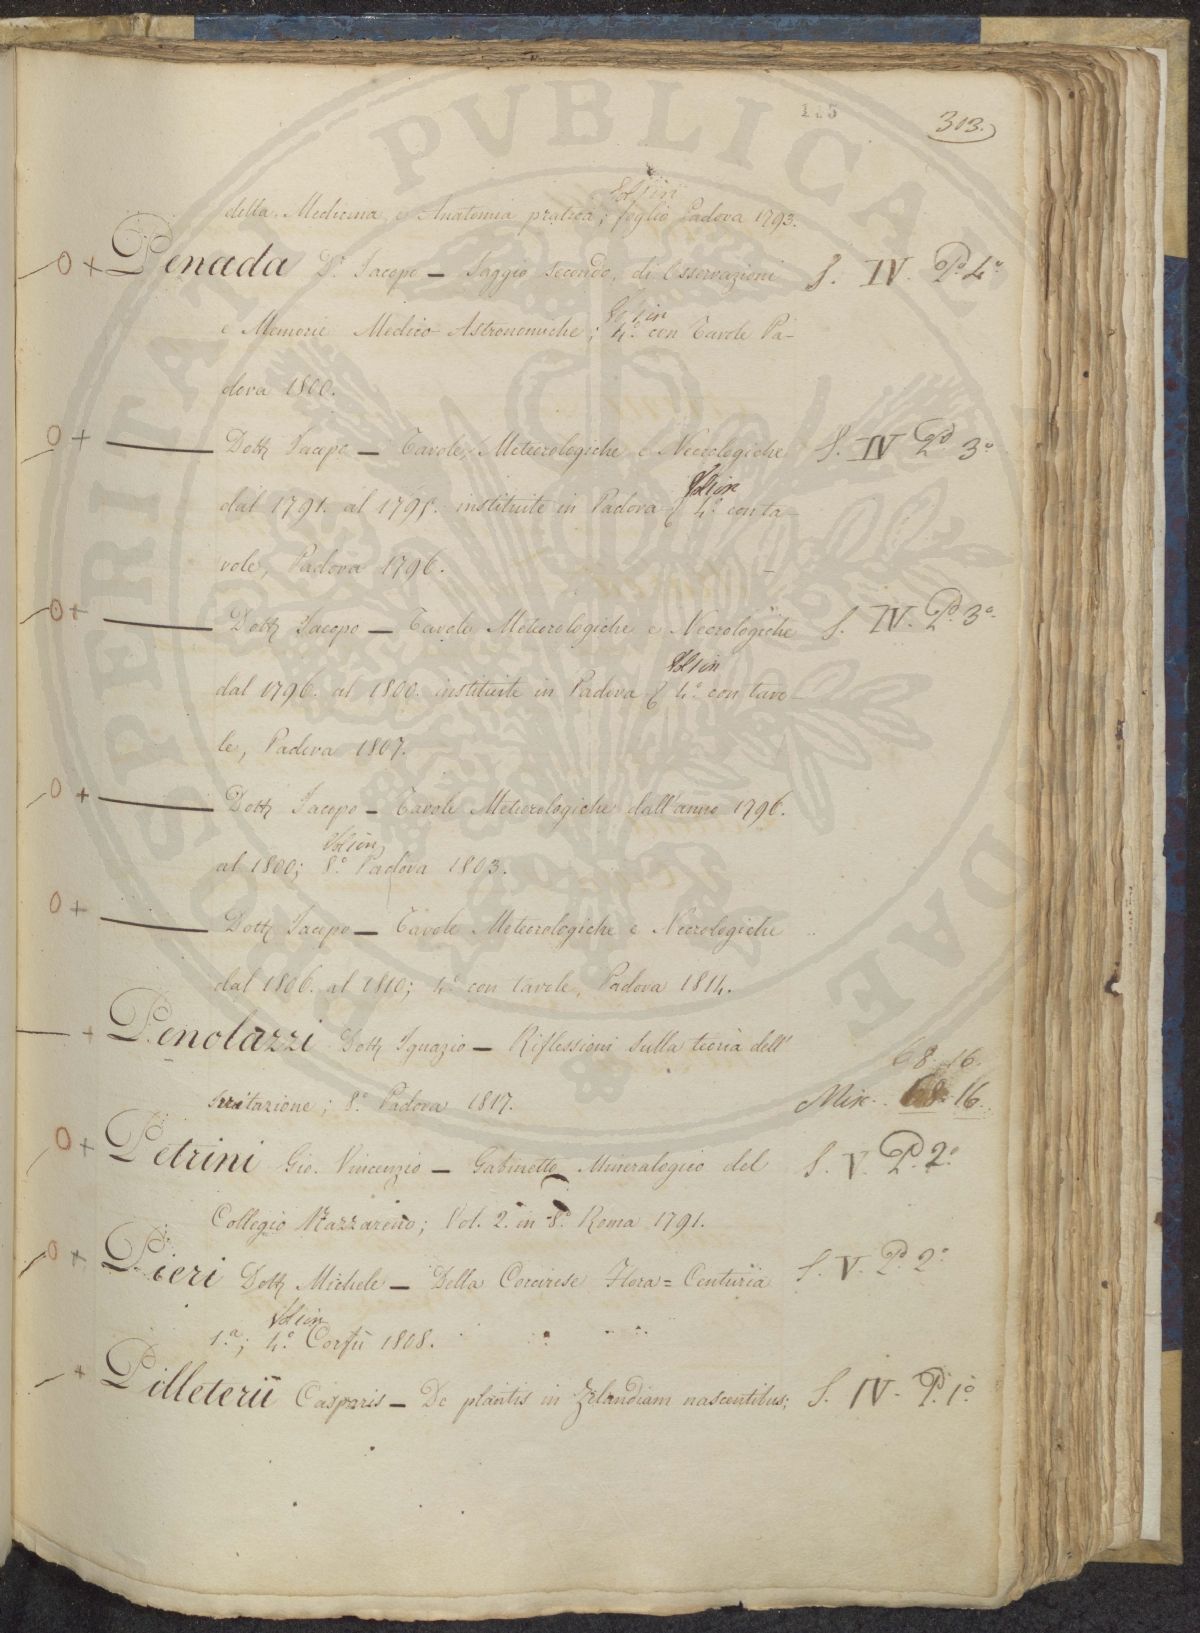 303.
Vol. 1 in
della Medicina, e Anatomia pratica; foglio Padova 1793.
O + Penada Dr. Jacopo — Saggio secondo, di Osservazioni S. IV. P.o 4.o
Vol. 1 in
e Memorie Medico-Astronomiche; 4.o con Tavole Pa-
dova 1800.
O + —— Dott Jacopo — Tavole Meteorologiche e Necrologiche S. IV P.o 3.o
Vol 1 in
dal 1791. al 1795. instituite in Padova 4.o con ta-
vole, Padova 1796.
O + —— Dott Jacopo — Tavole Meteorologiche e Necrologiche S. IV. P.o 3.o
Vol 1 in
dal 1796. al 1800. instituite in Padova 4.o con tavo-
le, Padova 1807.
O + —— Dott Jacopo — Tavole Meteorologiche dall'anno 1796.
Vol 1 in
al 1800; 8.o Padova 1803.
O + —— Dott Jacopo — Tavole Meteorologiche e Necrologiche
dal 1806. al 1810; 4.o con tavole, Padova 1814.
+ Penolazzi Dott Ignazio — Riflessioni sulla teoria dell'
68. 16.
Irritazione; 8.o Padova 1817. Misc. 68. 16.
O + Petrini Gio. Vincenzio — Gabinetto Mineralogico del S. V. P.o 2.o
Collegio Nazzareno; Vol. 2. in 8.o Roma 1791.
O + Pieri Dott Michele — Della Corcirese Flora = Centuria S. V. P.o 2.o
Vol 1 in
1.a; 4.o Corfù 1808.
+ Pilleterii Casparis — De plantis in Zelandiam nascentibus; S. IV. P. 1.o
PROSPERITATI PVBLICAE AVGENDAE